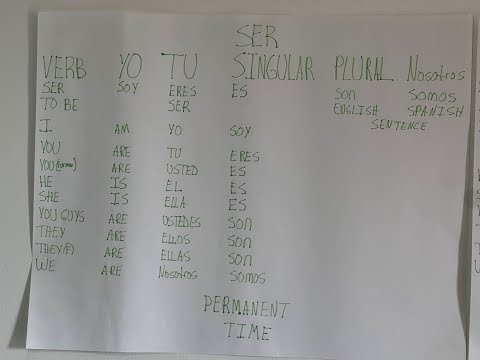 SER
VERB YO TU SINGULAR PLURAL Nosotros
SER SOY ERES ES SON SOMOS
TO BE SER ENGLISH SPANISH
SENTENCE
I AM YO SOY
YOU ARE TU ERES
YOU ARE USTED ES
HE IS EL ES
SHE IS ELLA ES
YOU GUYS ARE USTEDES SON
THEY ARE ELLOS SON
THEY(F) ARE ELLAS SON
WE ARE Nosotros SOMOS
PERMANENT
TIME